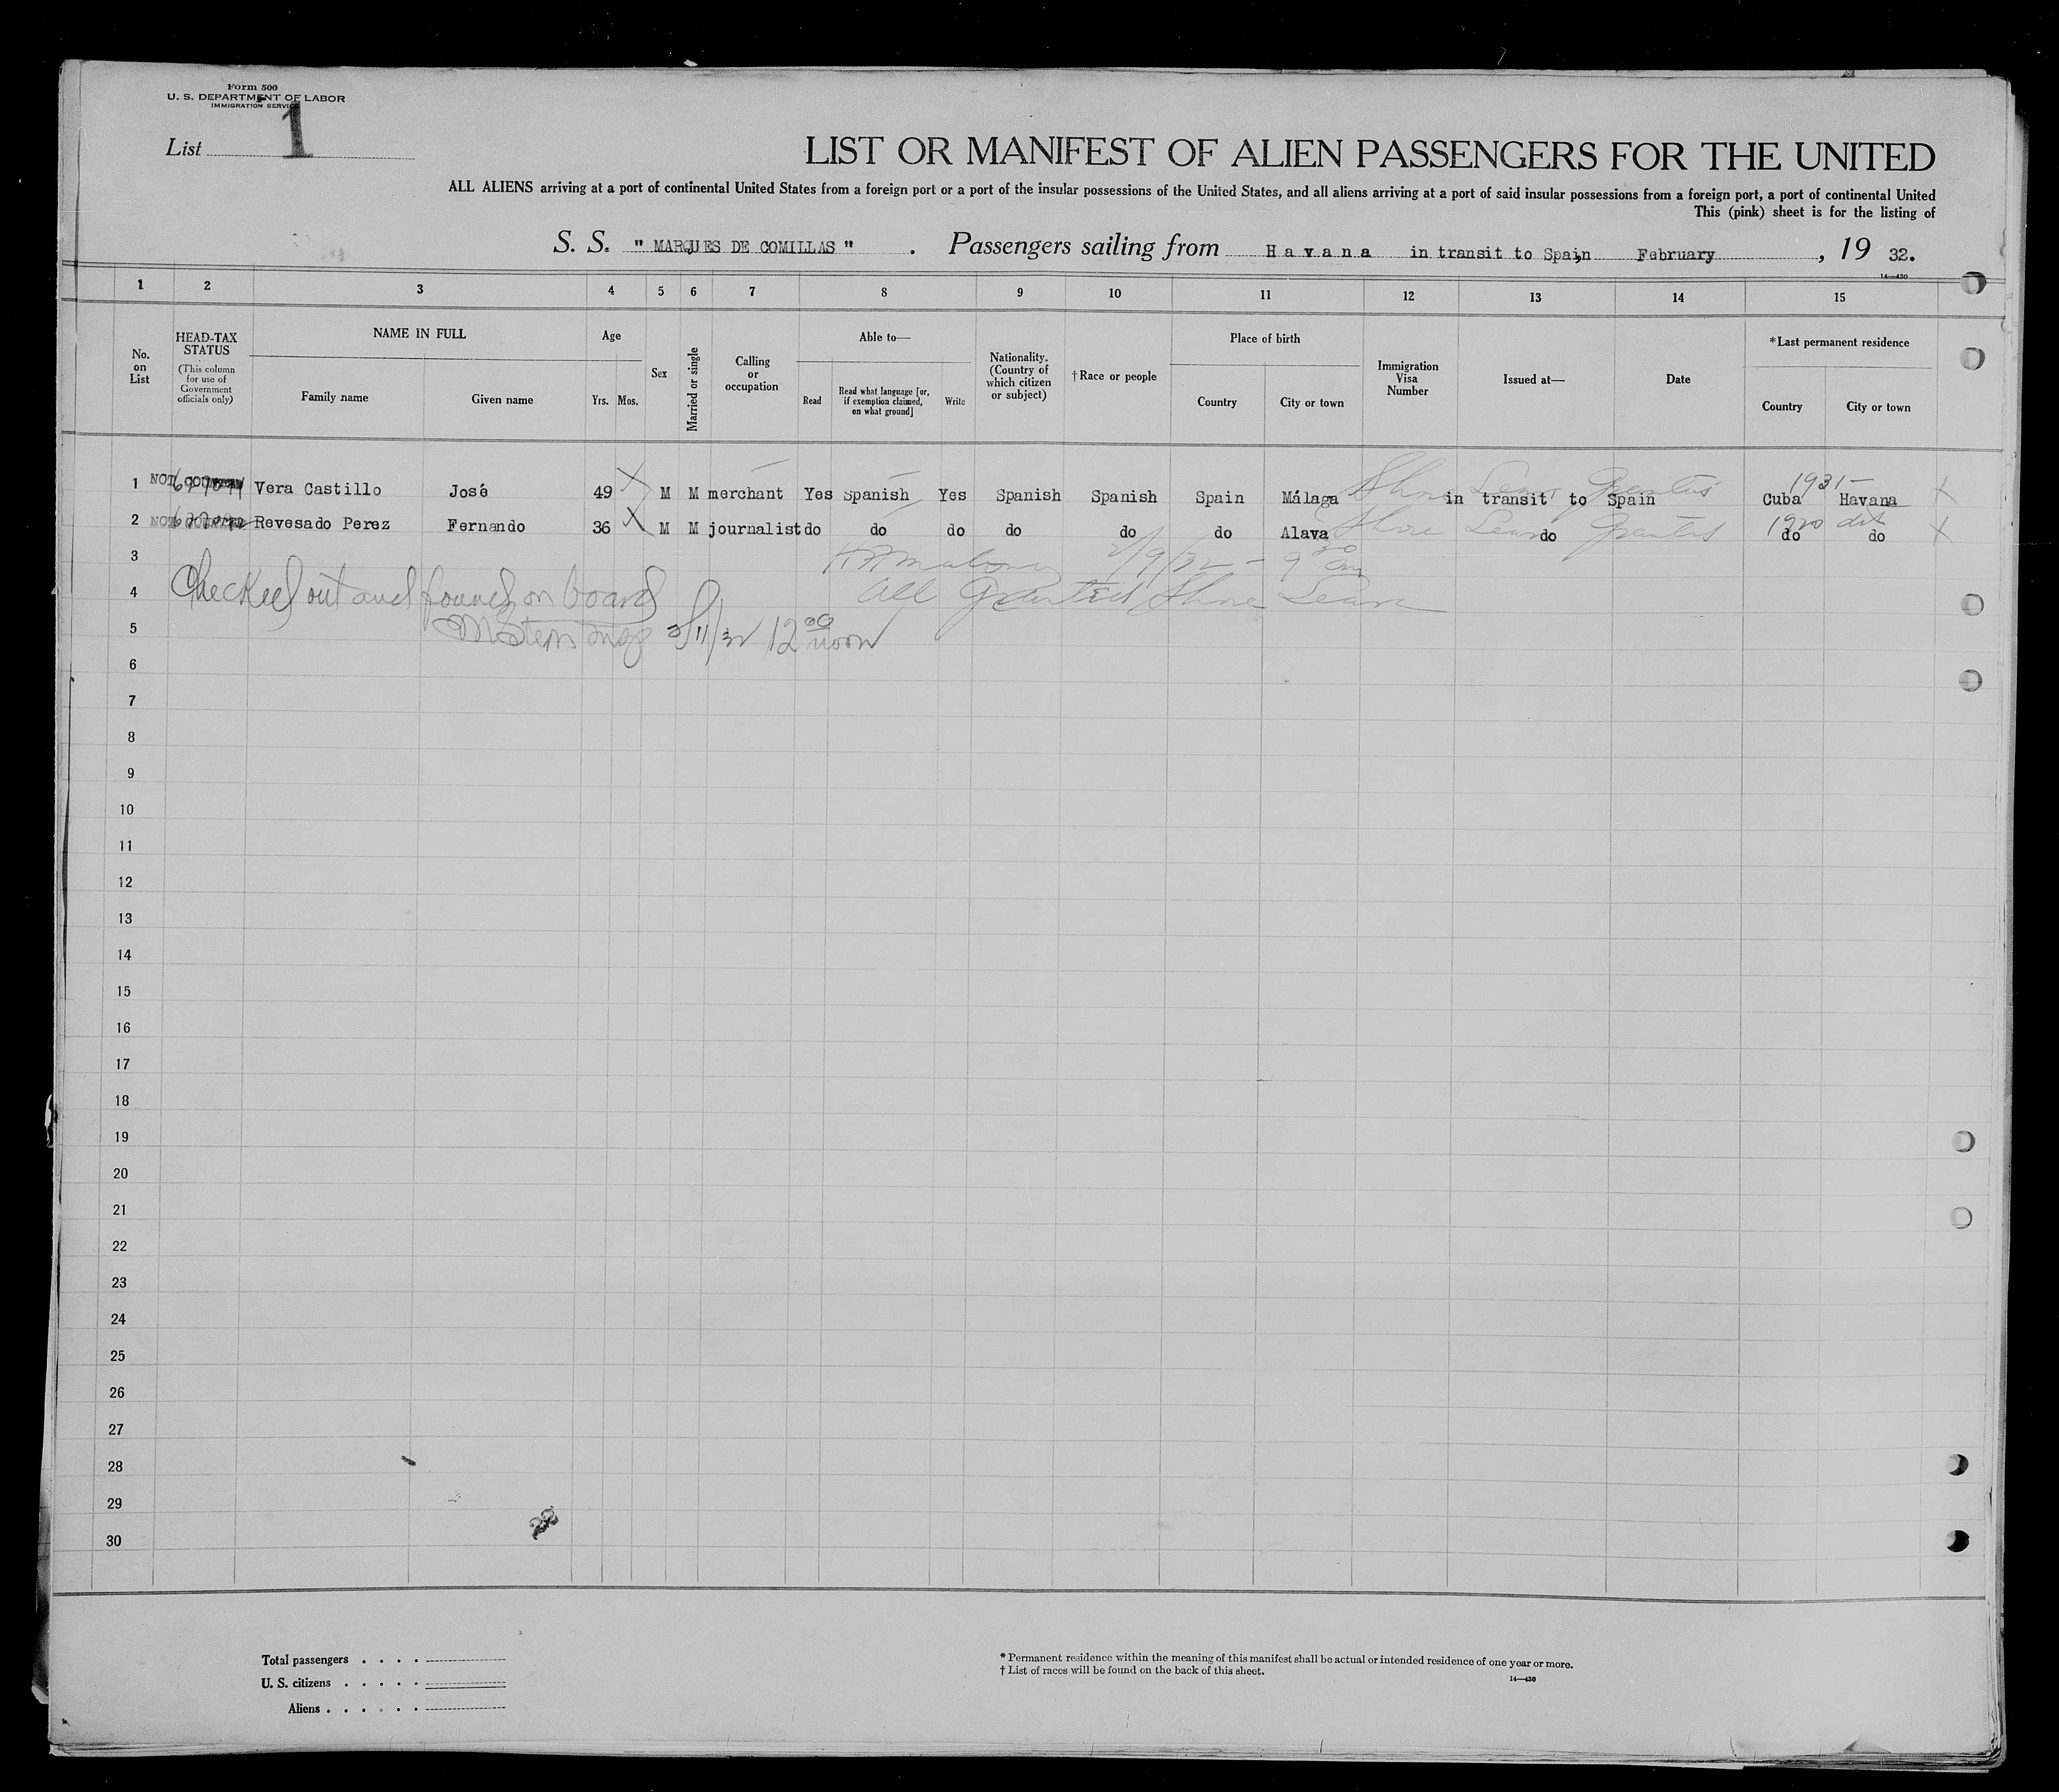 Form 500
U. S. DEPARTMENT OF LABOR
IMMIGRATION SERVICE
List 1
LIST OR MANIFEST OF ALIEN PASSENGERS FOR THE UNITED
ALL ALIENS arriving at a port of continental United States from a foreign port or a port of the insular possessions of the United States, and all aliens arriving at a port of said insular possessions from a foreign port, a port of continental United
This (pink) sheet is for the listing of
S. S. " MARQUES DE COMILLAS " . Passengers sailing from Havana in transit to Spain, February , 19 32.
14—430
1 2 3 4 5 6 7 8 9 10 11 12 13 14 15
No. on List
HEAD-TAX STATUS
(This column for use of Government officials only)
NAME IN FULL
Family name Given name
Age
Yrs. Mos.
Sex
Married or single
Calling or occupation
Able to—
Read
Read what language [or, if exemption claimed, on what ground]
Write
Nationality. (Country of which citizen or subject)
†Race or people
Place of birth
Country City or town
Immigration Visa Number
Issued at—
Date
*Last permanent residence
Country City or town
1931-
1 NOT COUNTED Vera Castillo José 49 M M merchant Yes Spanish Yes Spanish Spanish Spain Málaga in transit to Spain Cuba Havana
Shore Leave Granted
1920
2 NOT COUNTED Revesado Perez Fernando 36 M M journalist do do do do do do Alava do do do
Shore Leave Granted
3 2/9/32 - 9
4 Checked out and found on board All Granted Shore Leave
5 2/11/32 12 00 noon
6
7
8
9
10
11
12
13
14
15
16
17
18
19
20
21
22
23
24
25
26
27
28
29
30
Total passengers . . . .
U. S. citizens . . . . .
Aliens . . . . . .
* Permanent residence within the meaning of this manifest shall be actual or intended residence of one year or more.
† List of races will be found on the back of this sheet.
14—430